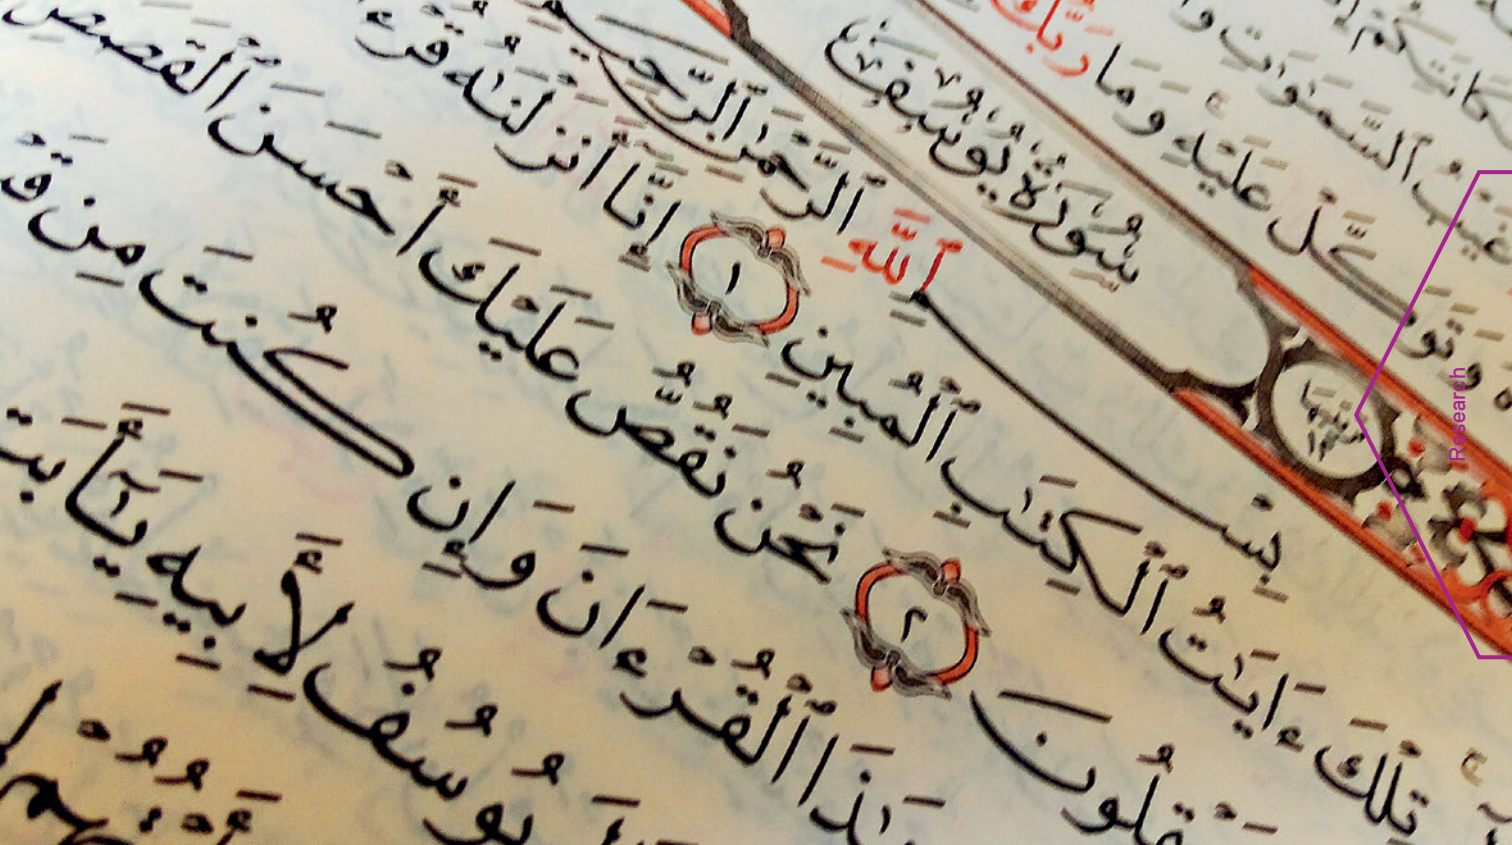 كَانَتِكُمْ
غَيْبُ ٱلسَّمَٰوَٰتِ وَٱ
وَتَوَكَّلْ عَلَيْهِ وَمَا رَبُّكَ
سُورَةُ يُوسُفَ
بِسْمِ ٱللَّهِ ٱلرَّحْمَٰنِ ٱلرَّحِيمِ
تِلْكَ ءَايَٰتُ ٱلْكِتَٰبِ ٱلْمُبِينِ ١ إِنَّآ أَنزَلْنَٰهُ قُرْءَ
قِلُونَ ٢ نَحْنُ نَقُصُّ عَلَيْكَ أَحْسَنَ ٱلْقَصَصِ
هَٰذَا ٱلْقُرْءَانَ وَإِن كُنتَ مِن قَ
يُوسُفُ لِأَبِيهِ يَٰٓأَبَتِ
Research